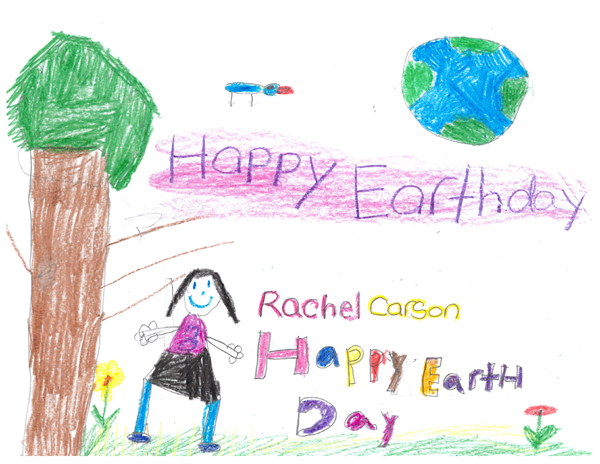 Happy Earthday
Rachel Carson
Happy Earth
Day